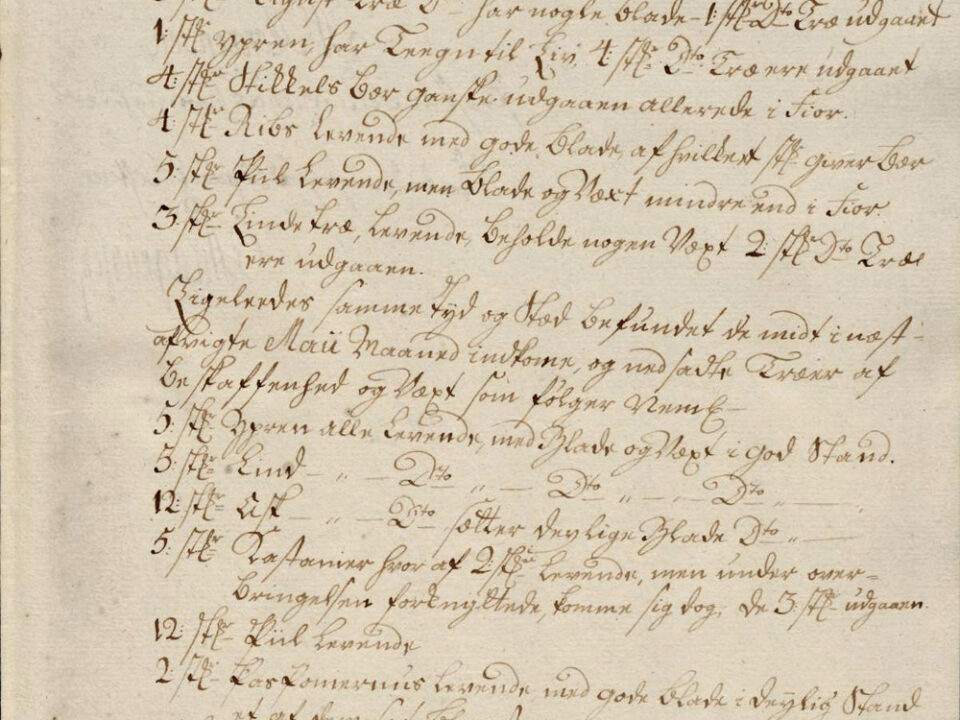 har nogle blade - 1: stk Dto Træ udgaaet
1: stk Ypren, har Teegn til Liv, 4: stkr Dto Træ ere udgaaet
4: stkr Stikkels Bær ganske udgaaen allerede i Fior.
4: stkr Ribs Levende med gode Blade, af hvilket stk giver Bær
5: stkr Piil Levende, men Blade og Væxt mindre end i Fior.
3: stkr Linde træ, Levende, beholde nogen Væxt 2: stkr Dto Træe
ere udgaaen.
Ligeleedes samme Tyd og Stæd befundet de midt i næst-
afvigte Maii Maaned indkomne, og nedsadte Træer af
Beskaffenhed og Væxt som følger Neml-
5: stkr Ypren alle Levende, med Blade og Væxt i god Stand.
3: stkr Lind - " - Dto " - Dto " - " - Dto " -
12: stkr Ask - " - Dto sætter deylige Blade Dto " -
5: stkr Kastanier hvor af 2: stkr Levende, men under over=
bringelsen forknyttede, komme sig dog, de 3: stkr udgaaen.
12: stkr Piil Levende
2: stkr Levende, med gode blade i deylig Stand
et af dem